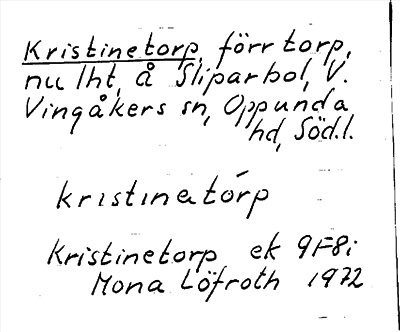 Kristinetorp, förr torp,
nu lht, å Sliparbol, V.
Vingåkers sn, Oppunda
hd, Söd.l.
kristinatórp
Kristinetorp ek 9F8i
Mona Löfroth 1972